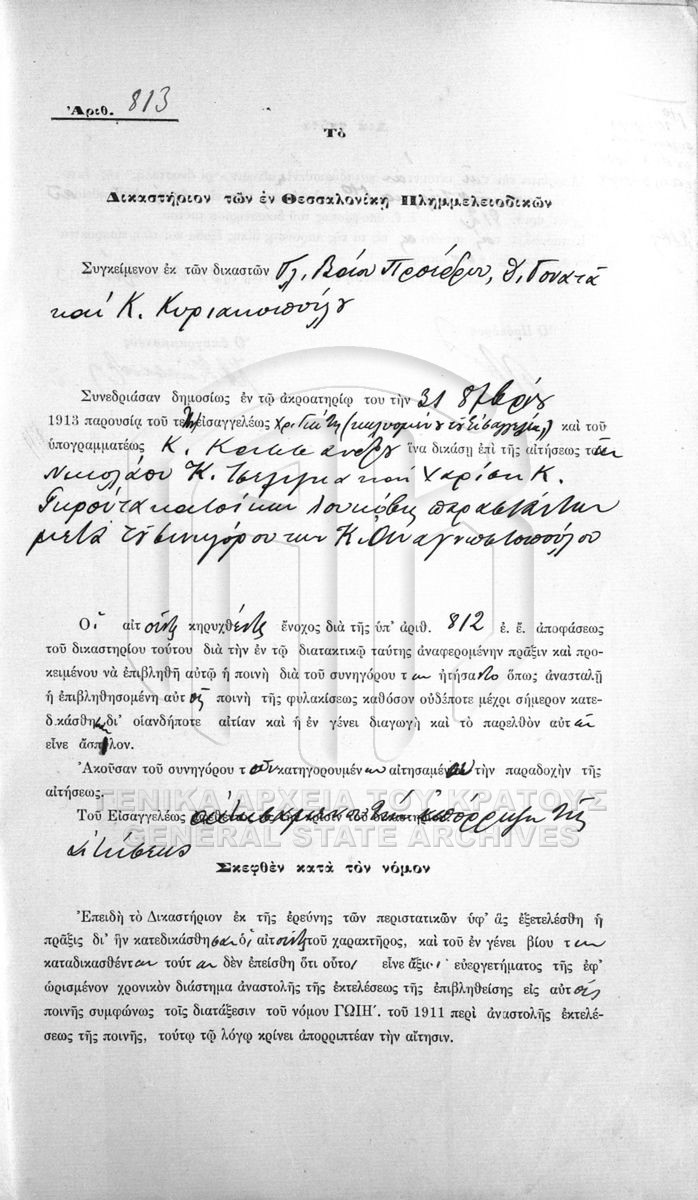 Ἀριθ. 813
Τὸ
Δικαστήριον τῶν ἐν Θεσσαλονίκῃ Πλημμελειοδικῶν
Συγκείμενον ἐκ τῶν δικαστῶν Γλ. Βάσου Προέδρου, Θ. Γονατᾶ
καὶ Κ. Κυριακοπούλου
Συνεδριάσαν δημοσίως ἐν τῷ ἀκροατηρίῳ του τὴν 31 8/βρίου
1913 παρουσίᾳ τοῦ εἰσαγγελέως καὶ τοῦ
ὑπογραμματέως Κ. ἵνα δικάσῃ ἐπὶ τῆς αἰτήσεως τῶν
Νικολάου Κ. καὶ Χαρίση Κ.
κατοίκων παραστάντων
μετὰ τοῦ συνηγόρου των Κ. Αναγνωστοπούλου
Οἱ αἰτοῦντες κηρυχθέντες ἔνοχος διὰ τῆς ὑπ' ἀριθ. 812 ἐ. ἔ. ἀποφάσεως
τοῦ δικαστηρίου τούτου διὰ τὴν ἐν τῷ διατακτικῷ ταύτης ἀναφερομένην πρᾶξιν καὶ προ-
κειμένου νὰ ἐπιβληθῇ αὐτῷ ἡ ποινὴ διὰ τοῦ συνηγόρου των ᾐτήσαντο ὅπως ἀνασταλῇ
ἡ ἐπιβληθησομένη αὐτοῖς ποινὴ τῆς φυλακίσεως καθόσον οὐδέποτε μέχρι σήμερον κατε-
δικάσθησαν δι' οἱανδήποτε αἰτίαν καὶ ἡ ἐν γένει διαγωγὴ καὶ τὸ παρελθὸν αὐτῶν
εἶνε ἄσπιλον.
Ἀκοῦσαν τοῦ συνηγόρου τῶν κατηγορουμένων αἰτησαμένου τὴν παραδοχὴν τῆς
αἰτήσεως.
Τοῦ Εἰσαγγελέως τὴν ἀπόρριψιν τῆς
αἰτήσεως
Σκεφθὲν κατὰ τὸν νόμον
Ἐπειδὴ τὸ Δικαστήριον ἐκ τῆς ἐρεύνης τῶν περιστατικῶν ὑφ' ἃς ἐξετελέσθη ἡ
πρᾶξις δι' ἣν κατεδικάσθησαν οἱ αἰτοῦντες τοῦ χαρακτῆρος, καὶ τοῦ ἐν γένει βίου των
καταδικασθέντων τούτων δὲν ἐπείσθη ὅτι οὗτοι εἶνε ἄξιοι εὐεργετήματος τῆς ἐφ'
ὡρισμένον χρονικὸν διάστημα ἀναστολῆς τῆς ἐκτελέσεως τῆς ἐπιβληθείσης εἰς αὐτοὺς
ποινῆς συμφώνως τοῖς διατάξεσιν τοῦ νόμου ΓΩΙΗ΄. τοῦ 1911 περὶ ἀναστολῆς ἐκτελέ-
σεως τῆς ποινῆς, τούτῳ τῷ λόγῳ κρίνει ἀπορριπτέαν τὴν αἴτησιν.
ΓΕΝΙΚΑ ΑΡΧΕΙΑ ΤΟΥ ΚΡΑΤΟΥΣ
GENERAL STATE ARCHIVES